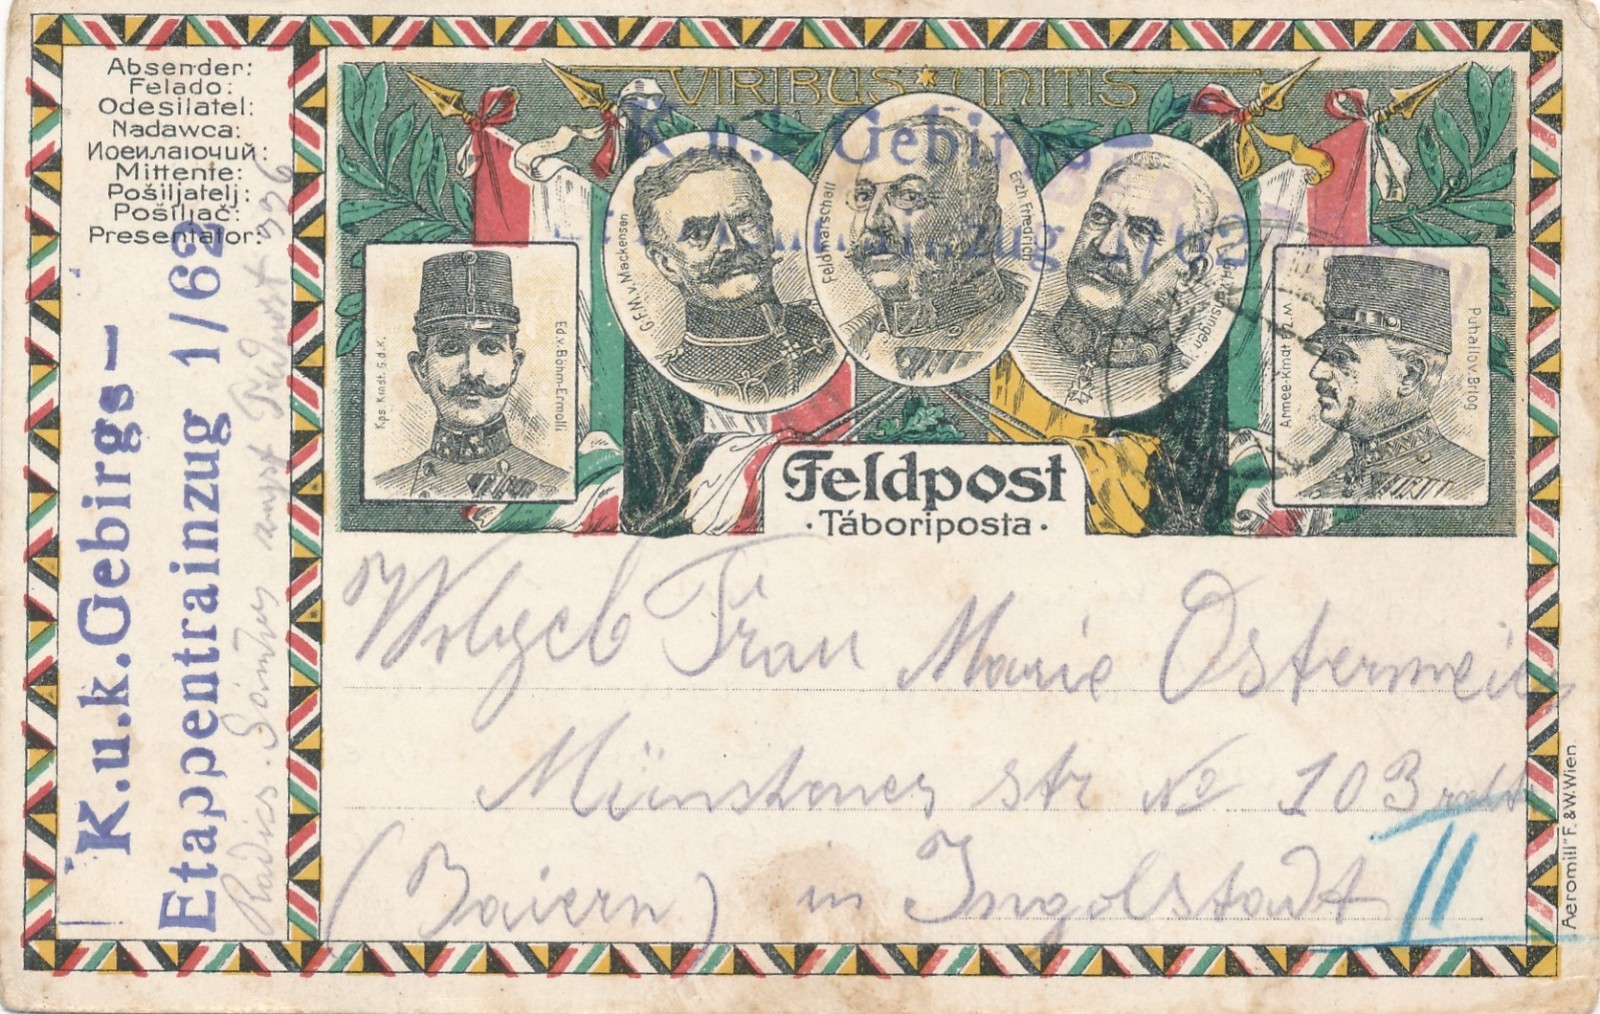 Absender:
Felado:
Odesilatel:
Nadawca:
Mittente:
Pošiljatelj:
Presentator:
K.u.k.Gebirgs—
Etappentrainzug 1/62
Radics Sándor 326
VIRIBUS ★ UNITIS
K.u.k.Gebirgs—
zug 1/62
Kps. Kmdt. G.d.K.
Ed.v.Böhm-Ermolli
G.F.M. v. Mackensen
Feldmarschall
Erzh. Friedrich
Armee-Kmdt
Puhallo v. Brlog
Feldpost
·Táboriposta·
Wolgeb Frau Marie Ostermeier
Münchner str № 10
(Baiern) in Ingolstadt II
Aeromill" F.&W.Wien